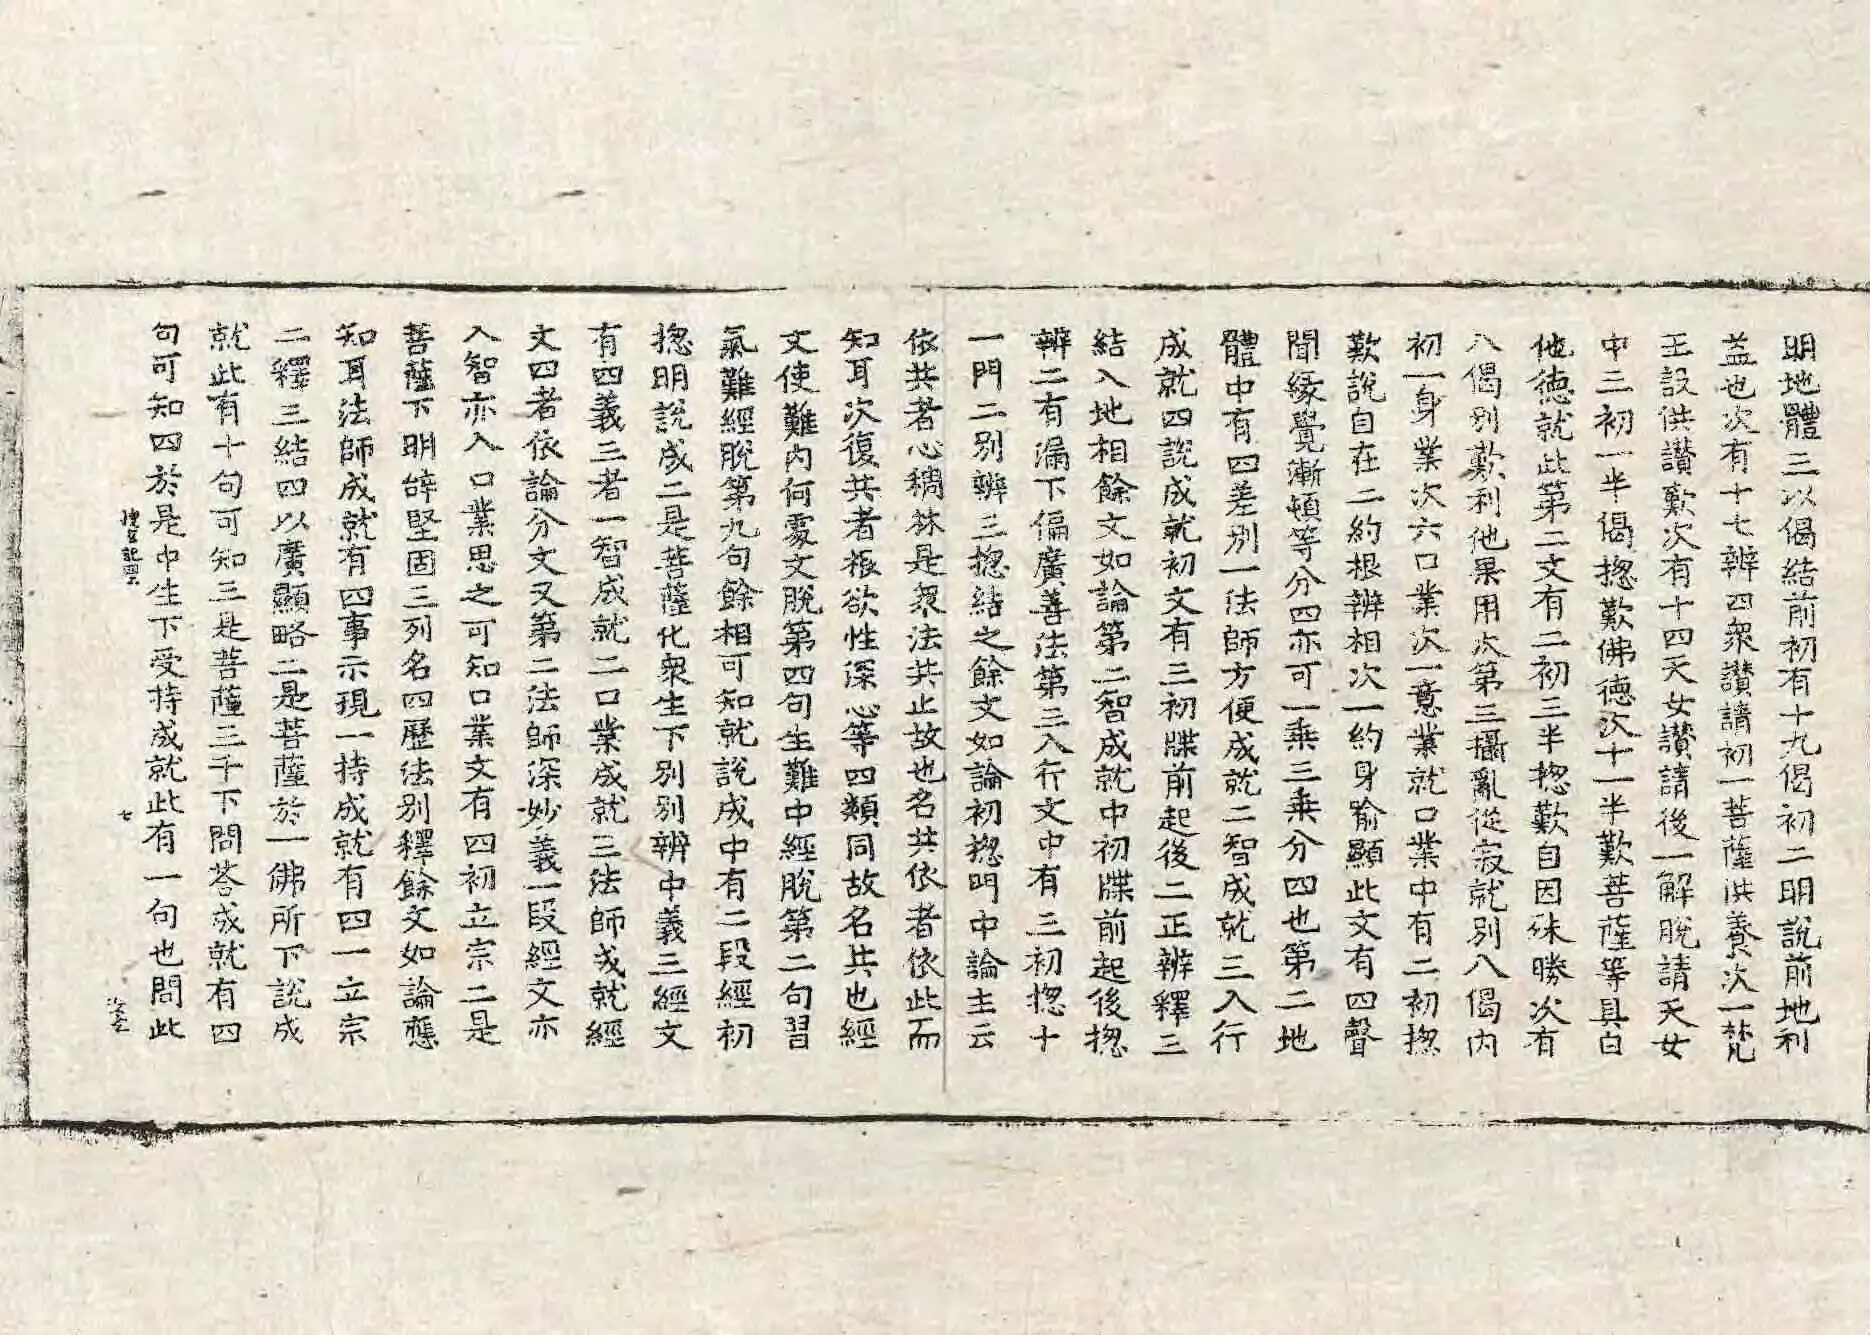 明地體三以偈結前初有十九偈初二明說前地利
益也次有十七辨四衆讃請初一菩薩供養次一梵
王設供讃歎次有十四天女讃請後一解脫請天女
中三初一半偈揔歎佛德次十一半歎菩薩等具白
他徳就此第二文有二初三半揔歎自因殊勝次有
八偈別歎利他果用次第三攝亂從寂就別八偈内
初一身業次六口業次一意業就口業中有二初揔
歎說自在二約根辨相次一約身喻顯此文有四聲
聞縁覺漸頓等分四亦可一乘三乘分四也第二地
體中有四差別一法師方便成就二智成就三入行
成就四說成就初文有三初牒前起後二正辨釋三
結入地相餘文如論第二智成就中初牒前起後揔
辨二有漏下偏廣善法第三入行文中有三初揔十
一門二別辨三揔結之餘文如論初揔門中論主云
依共者心稠林是衆法共止故也名共依者依此而
知耳次復共者根欲性深心等四類同故名共也經
文使難内何處文脫第四句生難中經脫第二句習
氣難經脫第九句餘相可知就說成中有二段經初
揔明說成二是菩薩化衆生下別別辨中義三經文
有四義三者一智成就二口業成就三法師成就經
文四者依論分文又第二法師深妙義一段經文亦
入智亦入口業思之可知口業文有四初立宗二是
菩薩下明辝堅固三列名四歷法別釋餘文如論應
知耳法師成就有四事示現一持成就有四一立宗
二釋三結四以廣顯略二是菩薩於一佛所下說成
就此有十句可知三是菩薩三千下問荅成就有四
句可知四於是中生下受持成就此有一句也問此
七